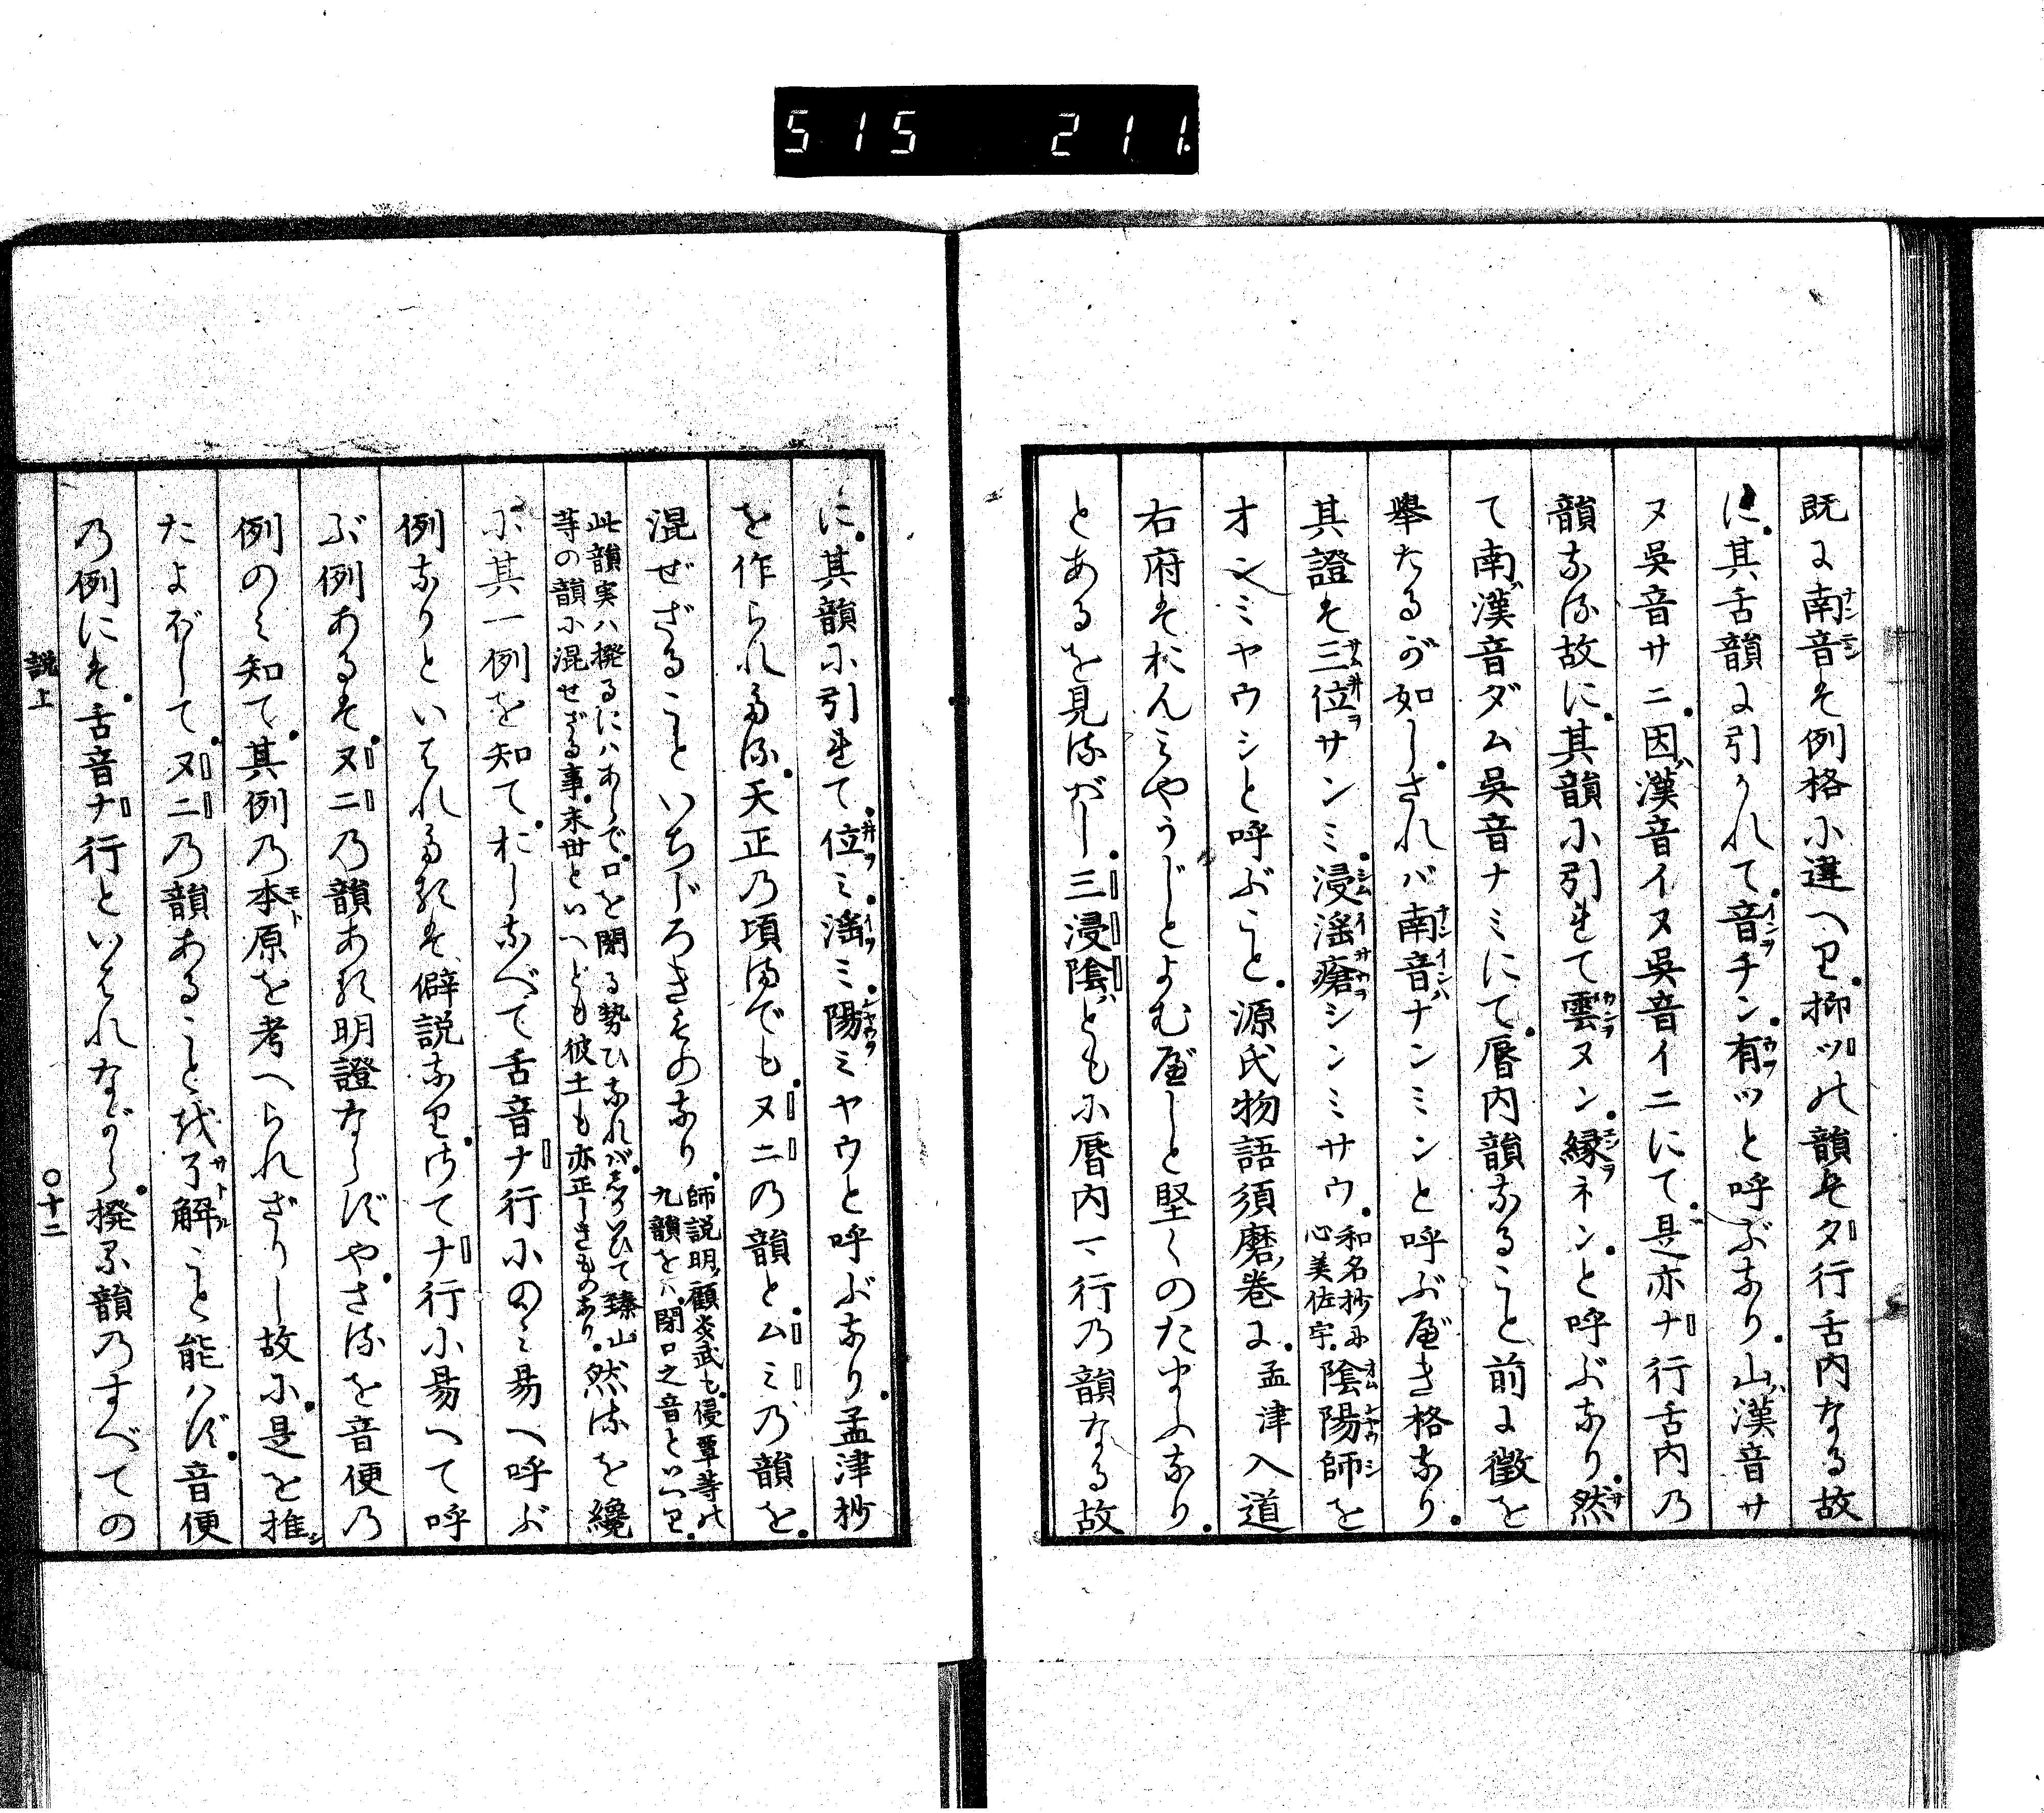 515 211
既に南音は例格に違へり。抑ツの韻はタ行舌内なる故
に。其舌韻に引かれて。音ヲチン。有ヲツと呼ぶなり。山ハ漢音サ
ヌ吳音サニ。因ハ漢音イヌ吳音イニにて。是亦ナ行舌内の
韻なる故に。其韻に引れて雲ヲヌン。縁ヲネン。と呼ぶなり。然
て南ハ漢音ダム吳音ナミにて。脣内韻なること前に徴を
擧たるが如し。されバ南音ハナンミンと呼ぶべき格なり。
其證は三位ヲサンミ。浸淫瘡ヲシンミサウ。和名抄に心美佐宇。陰陽師を
オンミヤウシと呼ぶこと。源氏物語須磨ノ巻に。孟津入道
右府はおんみやうじとよむべしと堅くのたまふなり。
とあるを見るべし。三浸陰ハともに脣内マ行の韻なる故
に。其韻に引れて。位ヲミ。淫ヲミ。陽ヲミヤウと呼ぶなり。孟津抄
を作られたる。天正の頃までも。ヌニの韻と。ムミの韻を。
混ぜざることいちじろきものなり。師説明ノ顧炎武も。侵覃等の
九韻をハ。閉口之音といへり。
此韻実ハ撥るにハあらで。口を閉る勢ひなれバ。しかいひて臻山
等の韻に混せざる事。末世といへども彼土も亦正しきものあり。然るを纔
に其一例を知て。おしなべて舌音ナ行にのミ昜へ呼ぶ
例なりといはれたるは、僻説なり。けてナ行に昜へて呼
ぶ例あるは。ヌニの韻ある明證ならずや。さるを音便の
例のミ知て。其例の本原を考へられざりし故に。是を推
たよぼして。ヌニの韻あることを了解こと能ハず。音便
の例には。舌音ナ行といはれながら。撥る韻のすべての
説上 〇十二